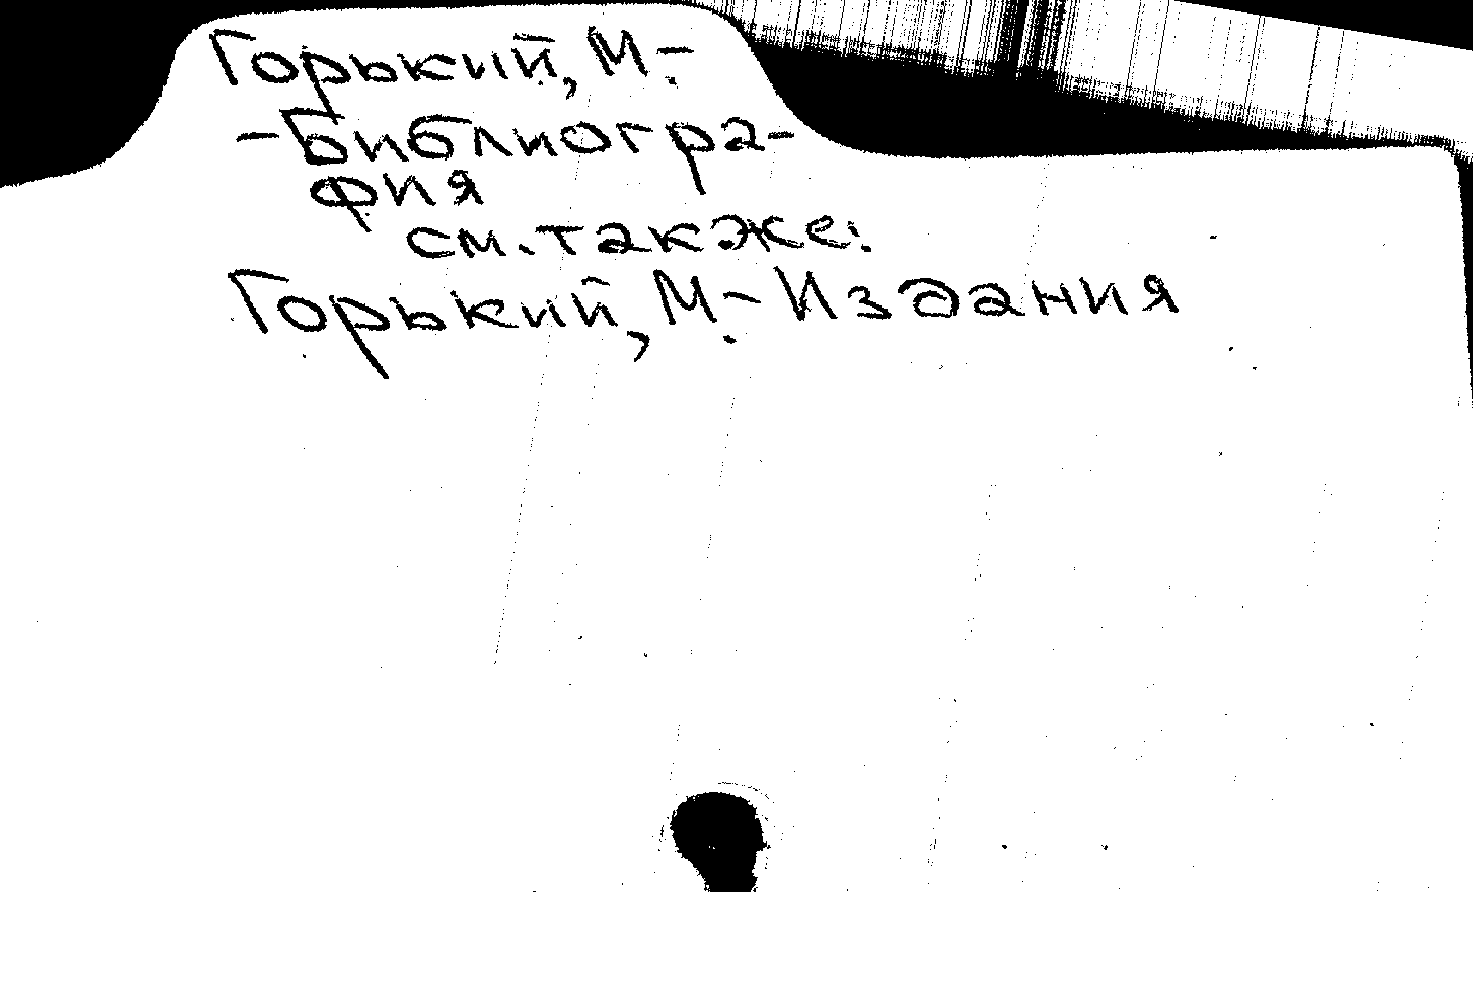 Горький, М.-
-Библиогра-
фия
см. также:
Горький, М.- Издания